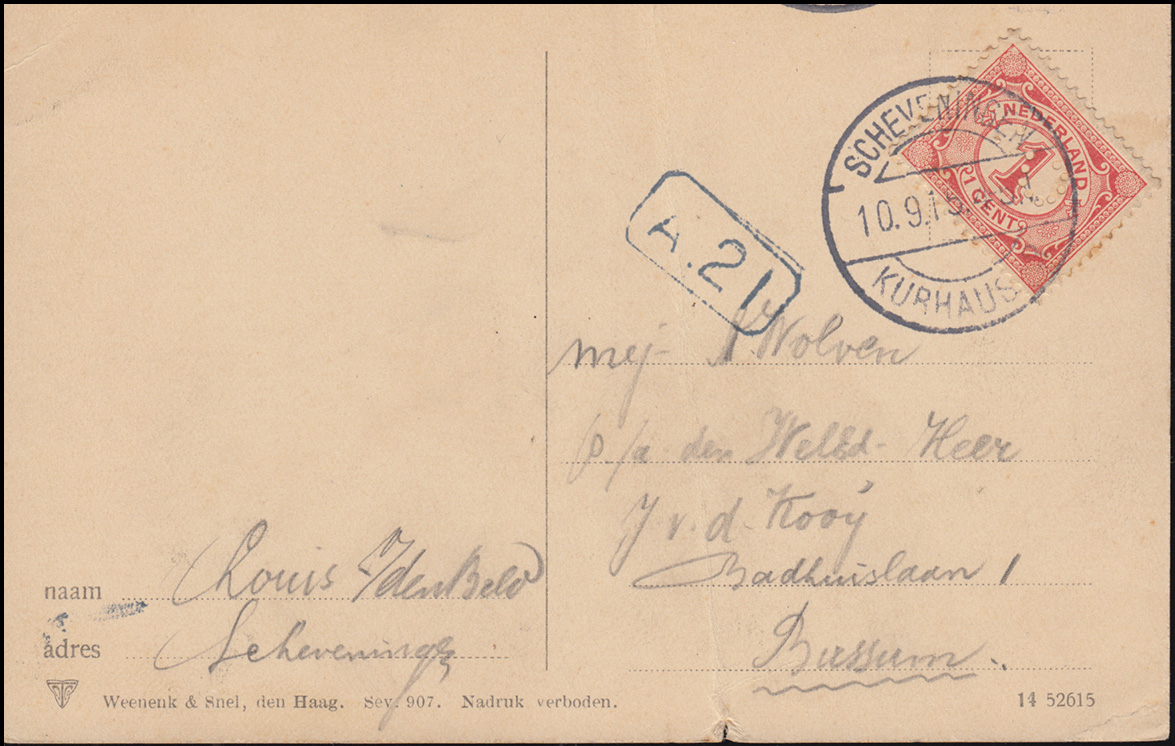 SCHEVENINGEN
10.9.1
KURHAUS
NEDERLAND
1
1 CENT
A.21
mej- Wolven
p/a den Heer
J v. d. Kooÿ
Badhuislaan 1
Bussum.
naam Louis
adres Scheveningen
Weenenk & Snel, den Haag. Sev. 907. Nadruk verboden.
14 52615